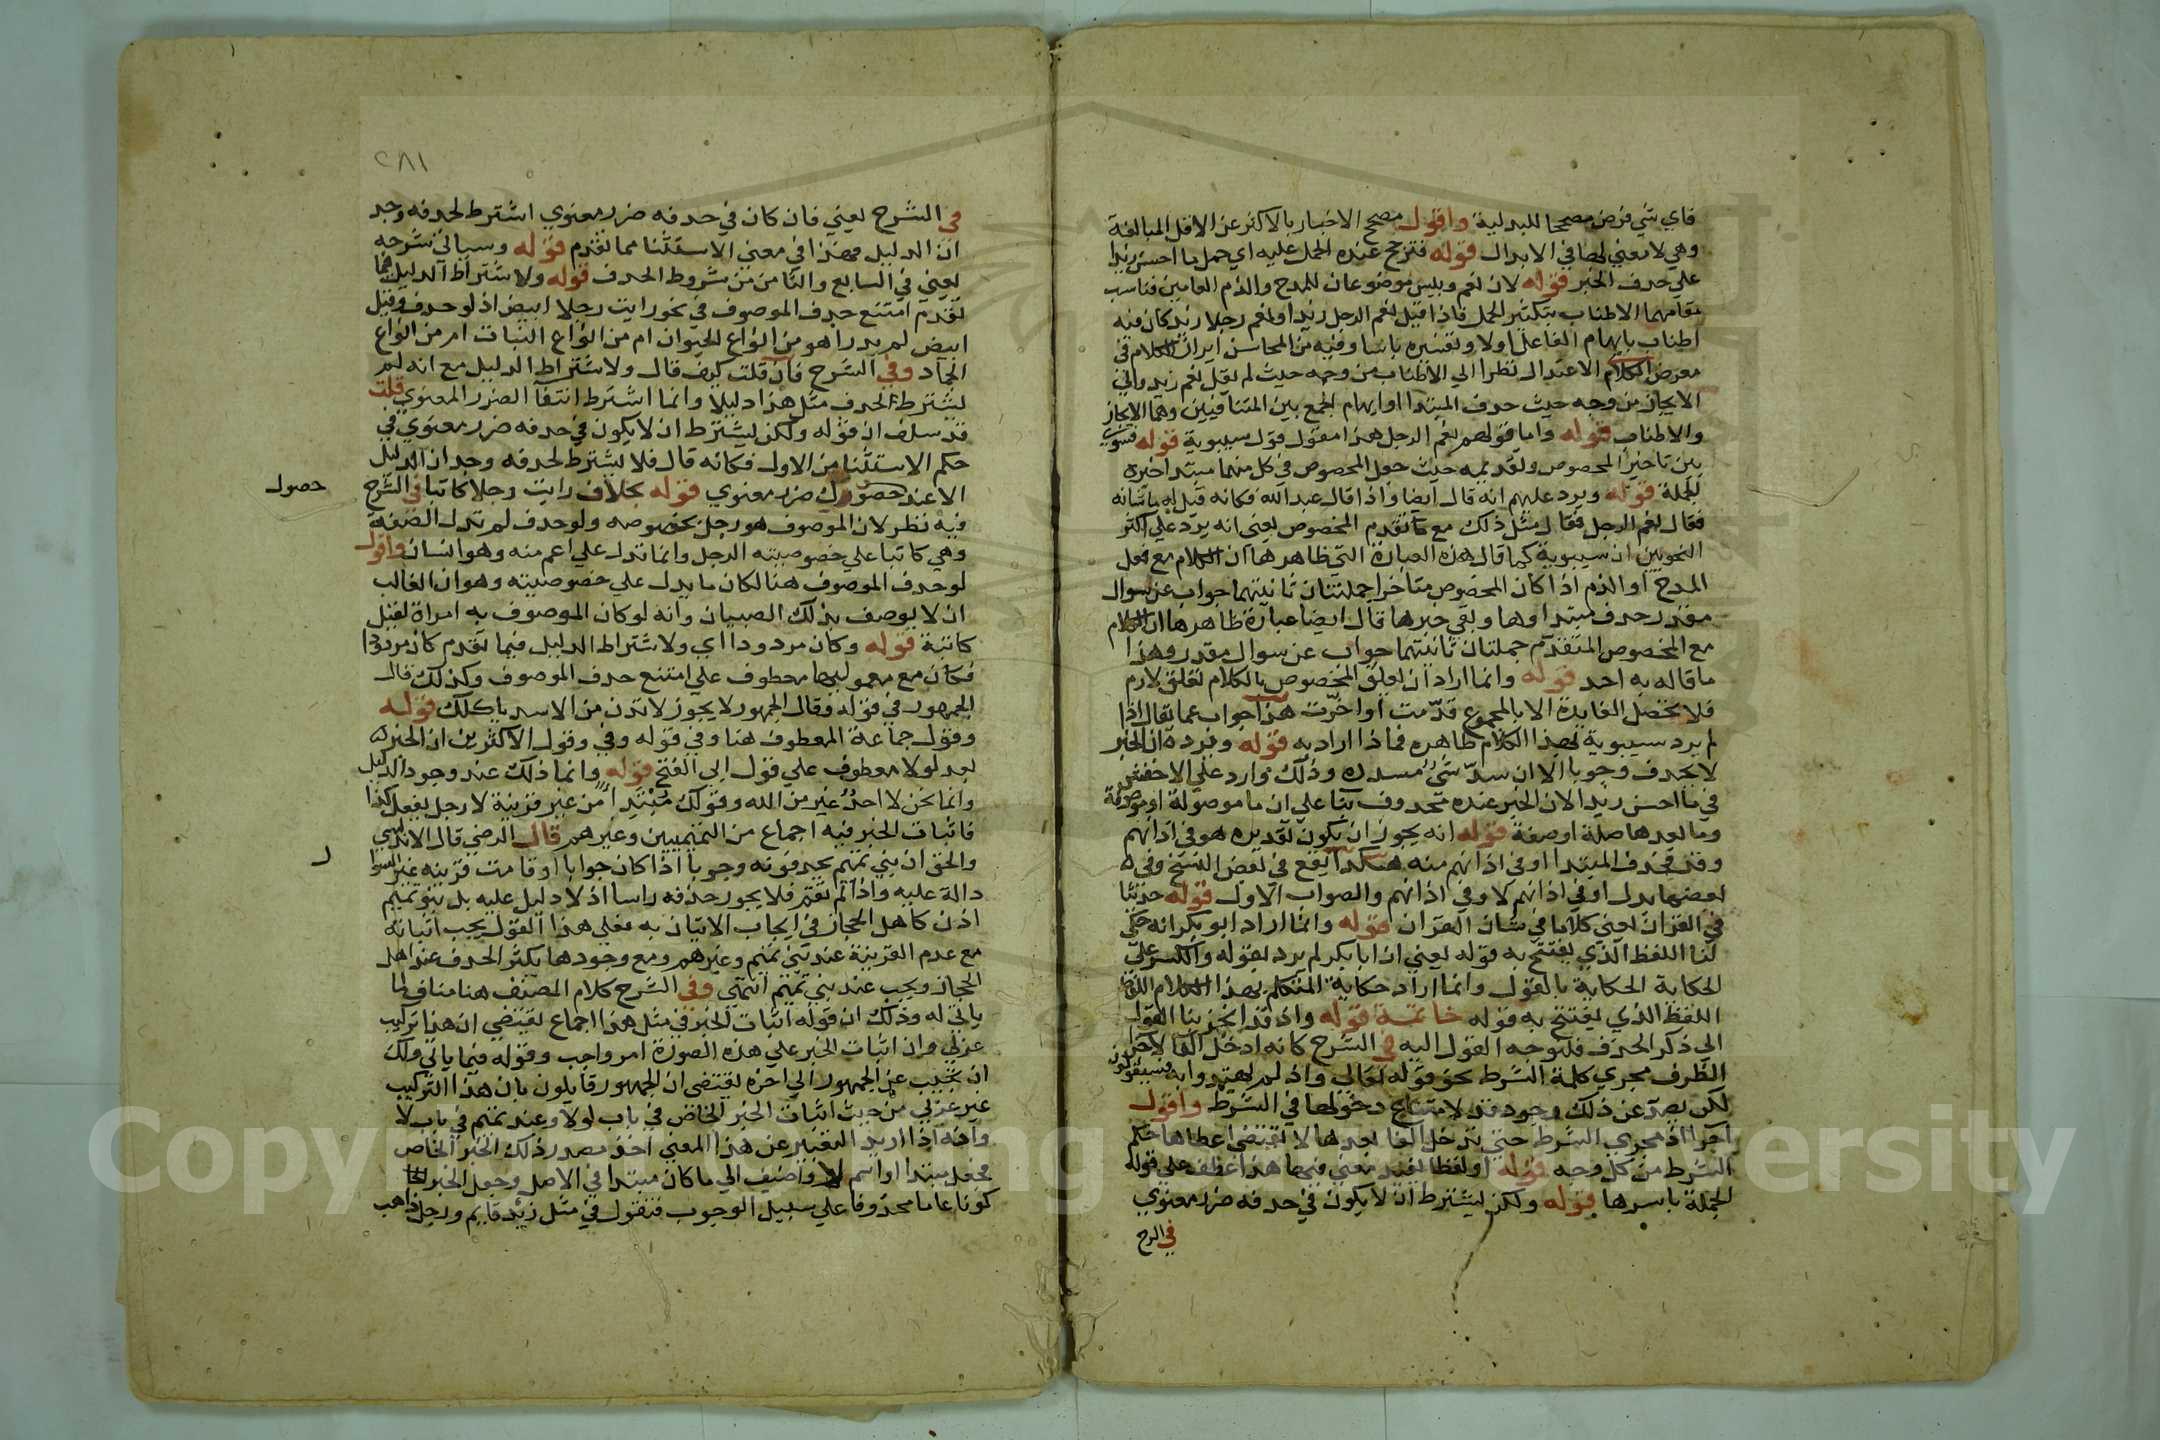 فاي شي فرض مصححا للبدلية واقول مصحح الاخبار بالاكثر عن الاقل المبالغة
وهي لا معني لها في الابدال قوله فترجح عنده الحمل عليه اي حمل ما احسن زيدا
علي حذف الخبر قوله لان نعم وبيس موضوعان للمدح والذم العامين فناسب
مقامهما الاطناب بتكثير الجمل فاذا قيل نعم الرجل زيد او نعم رجلا زيد كان فيه
اطناب بابهام الفاعل اولا وتفسيره ثانيا وفيه من المحاسن ابراز الكلام في
معرض الكلام الاعتدال نظرا الي الاطناب من وجه حيث لم يقل نعم زيد والي
الايجاز من وجه حيث حذف المبتدا او ابهام الجمع بين المتنافيين وهما الايجاز
والاطناب قوله واما قولهم نعم الرجل هذا مقول قول سيبوية قوله فسوي
بين تاخير المخصوص وتقديمه حيث جعل المخصوص في كل منهما مبتدا خبره
الجملة قوله ويرد عليهم انه قال ايضا واذا قال عبد الله فكانه قيل له ما شانه
فقال نعم الرجل فقال مثل ذلك مع تقدم المخصوص يعني انه يرد علي اكثر
النحويين ان سيبوية كما قال هذه العبارة التي ظاهرها ان الكلام مع فعل
المدح او الذم اذا كان المخصوص متاخرا جملتان ثانيتهما جواب عن سوال
مقدر حذف مبتداوها وبقي خبرها قال ايضا عبارة ظاهرها ان الكلام
مع المخصوص المتقدم جملتان ثانيتهما جواب عن سوال مقدر وهذا
ما قاله به احد قوله وانما اراد ان تعلق المخصوص بالكلام تعلق لازم
فلا تحصل الفايدة الا بالمجموع قدمت او اخرت هذا جواب عما يقال اذا
لم يرد سيبوية بهذا الكلام ظاهره فماذا اراد به قوله ويرده ان الخبر
لا يحذف وجوبا الا ان سد شي مسده وذلك وارد علي الاخفش
في ما احسن زيدا لان الخبر عنده محذوف بنا علي ان ما موصولة او موصوفة
وما بعدها صلة او صفة قوله انه يجوز ان يكون تقديره هو في اذانهم
وقر فحذف المبتدا او في اذانهم منه هكذا يقع في بعض النسخ وفي
بعضها بدل او في اذانهم لا وفي اذانهم والصواب الاول قوله حزبنا
في القران يعني كلاما في شان القران قوله وانما اراد ابو بكر انه حكي
لنا اللفظ الذي يفتتح به قوله يعني ان ابا بكر لم يرد بقوله والكسر علي
الحكاية الحكاية بالقول وانما اراد حكاية المتكلم بهذا الكلام
اللفظ الذي يفتتح به قوله خاتمة قوله واذ قد انجز بنا القول
الي ذكر الحذف فلنوجه القول اليه في الشرح كانه ادخل الفا لاجرا
الظرف مجري كلمة الشرط نحو قوله تعالي واذ لم يهتدوا به فسيقولون
لكن يصد عن ذلك وجود قد لامتناع دخولها في الشرط واقول
اجرا اذ مجري الشرط حتي تدخل الفا بعدها لا يقتضي اعطاها حكم
الشرط من كل وجه قوله او لفظا يفيد معني فيها هذا عطف علي قوله
الجملة باسرها قوله ولكن يشترط ان لا يكون في حذفه ضرر معنوي
في الرح
٢٨١
في الشرح يعني فان كان في حذفه ضرر معنوي اشترط لحذفه وجد
ان الدليل فهذا في معني الاستثنا مما تقدم قوله وسياتي شرحه
يعني في السابع والثامن من شروط الحذف قوله ولاشتراط الدليل فيما
تقدم امتنع حذف الموصوف في نحو رايت رجلا ابيض اذ لو حذف وقيل
ابيض لم يدر اهو من انواع الحيوان ام من انواع النبات ام من انواع
الجماد وفي الشرح فان قلت كيف قال ولاشتراط الدليل مع انه لم
يشترط لحذف مثل هذا دليلا وانما اشترط انتفا الضرر المعنوي قلت
قد سلف ان قوله ولكن يشترط ان لا يكون في حذفه ضرر معنوي في
حكم الاستثنا من الاول فكانه قال فلا يشترط لحذفه وجدان الدليل
الا عند حصول ضرر معنوي قوله بخلاف رايت رجلا كاتبا في الشرح
حصول
فيه نظر لان الموصوف هو رجل بخصوصه ولو حذف لم تدل الصفة
وهي كاتبا علي خصوصيته الرجل وانما تدل علي اعم منه وهو انسان واقول
لو حذف الموصوف هنا لكان ما يدل علي خصوصيته وهو ان الغالب
ان لا يوصف بذلك الصبيان وانه لو كان الموصوف به امراة لقيل
كاتبة قوله وكان مردودا اي ولاشتراط الدليل فيما تقدم كان مردودا
فكان مع معموليها معطوف علي امتنع حذف الموصوف وكذلك قال
الجمهور في قوله وقال الجمهور لا يجوز لا تدن من الاسد ياكلك قوله
وقول جماعة المعطوف هنا وفي قوله وفي وقول الاكثرين ان الخبر
بعد لولا معطوف علي قول ابي الفتح قوله وانما ذلك عند وجود الدليل
وانما نحن لا احد اغير من الله وقولك مبتديا من غير قرينة لا رجل يفعل كذا
فاثبات الخبر فيه اجماع من التميميين وغيرهم قال الرضي قال الاندلسي
والحق ان بني تميم يحذفونه وجوبا اذا كان جوابا او قامت قرينة غير السوال
دالة عليه واذا لم تقم فلا يجوز حذفه راسا اذ لا دليل عليه بل بنو تميم
اذن كاهل الحجاز في ايجاب الاتيان به فعلي هذا القول يجب اثباته
مع عدم القرينة عند بني تميم وغيرهم ومع وجودها يكثر الحذف عند اهل
الحجاز ويجب عند بني تميم انتهي وفي الشرح كلام المصنف هنا مناف لما
ياتي له وذلك ان قوله اثبات الخبر في مثل هذا اجماع يقتضي ان هذا تركيب
عربي وان اثبات الخبر علي هذه الصورة امر واجب وقوله فيما ياتي ولك
ان تجيب عن الجمهور الي اخره يقتضي ان الجمهور قايلون بان هذا التركيب
غير عربي من حيث اثبات الخبر الخاص في باب لولا وعند تميم في باب لا
وانه اذا اريد التعبير عن هذا المعني اخذ مصدر ذلك الخبر الخاص
فجعل مبتدا او اسم لا واضيف الي ما كان مبتدا في الاصل وجعل الخبر
كونا عاما محذوفا علي سبيل الوجوب فتقول في مثل زيد قايم ورجل ذاهب